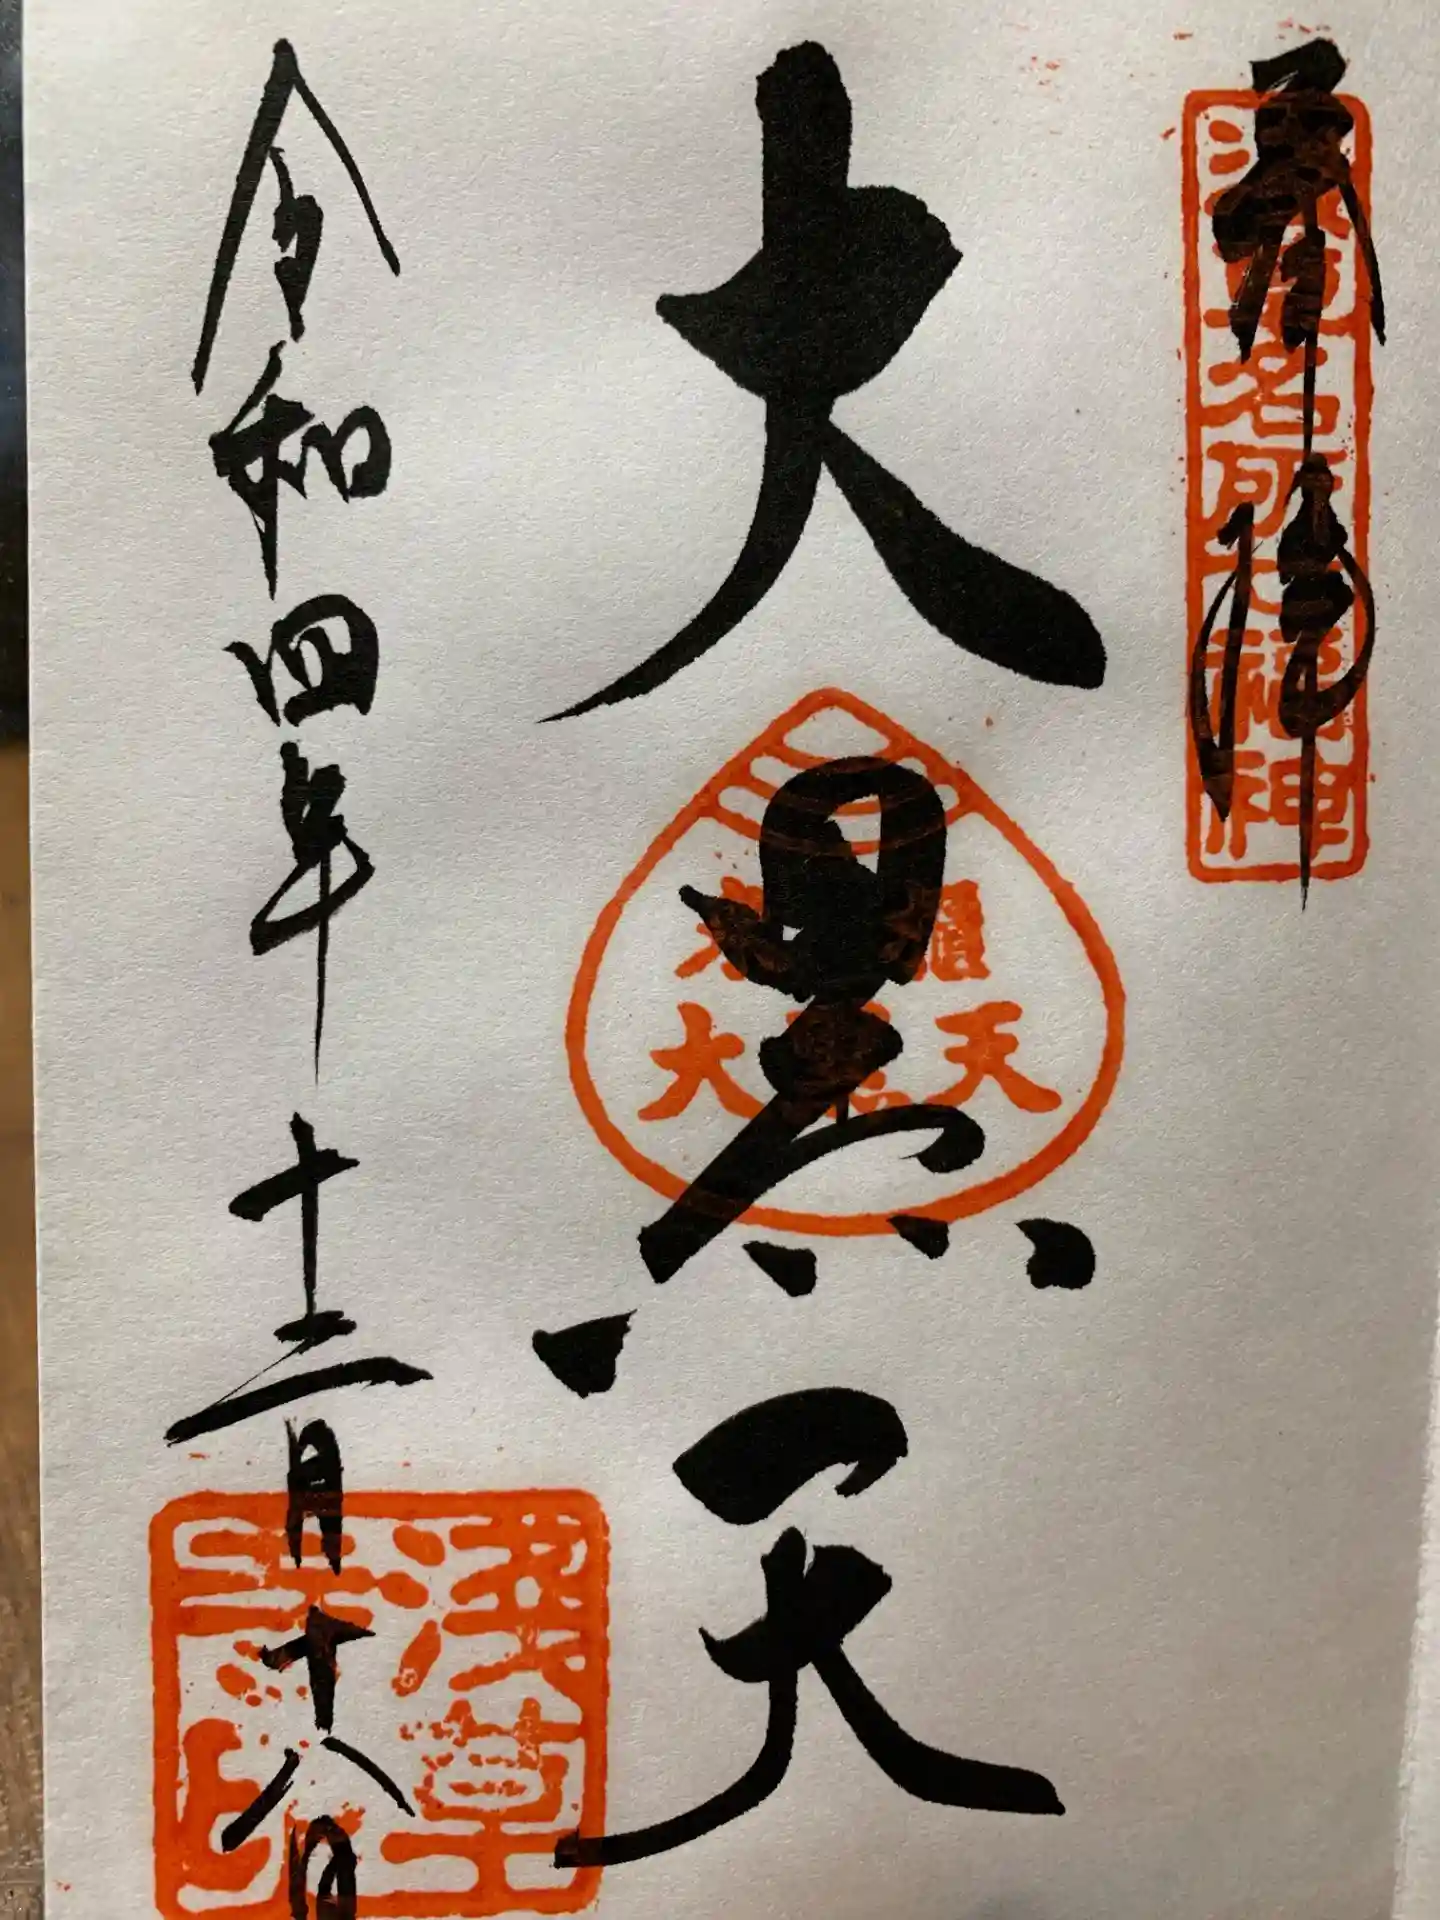 奉拝
浅草名所七福神
大黒天
大黒天
令和四年十二月十八日